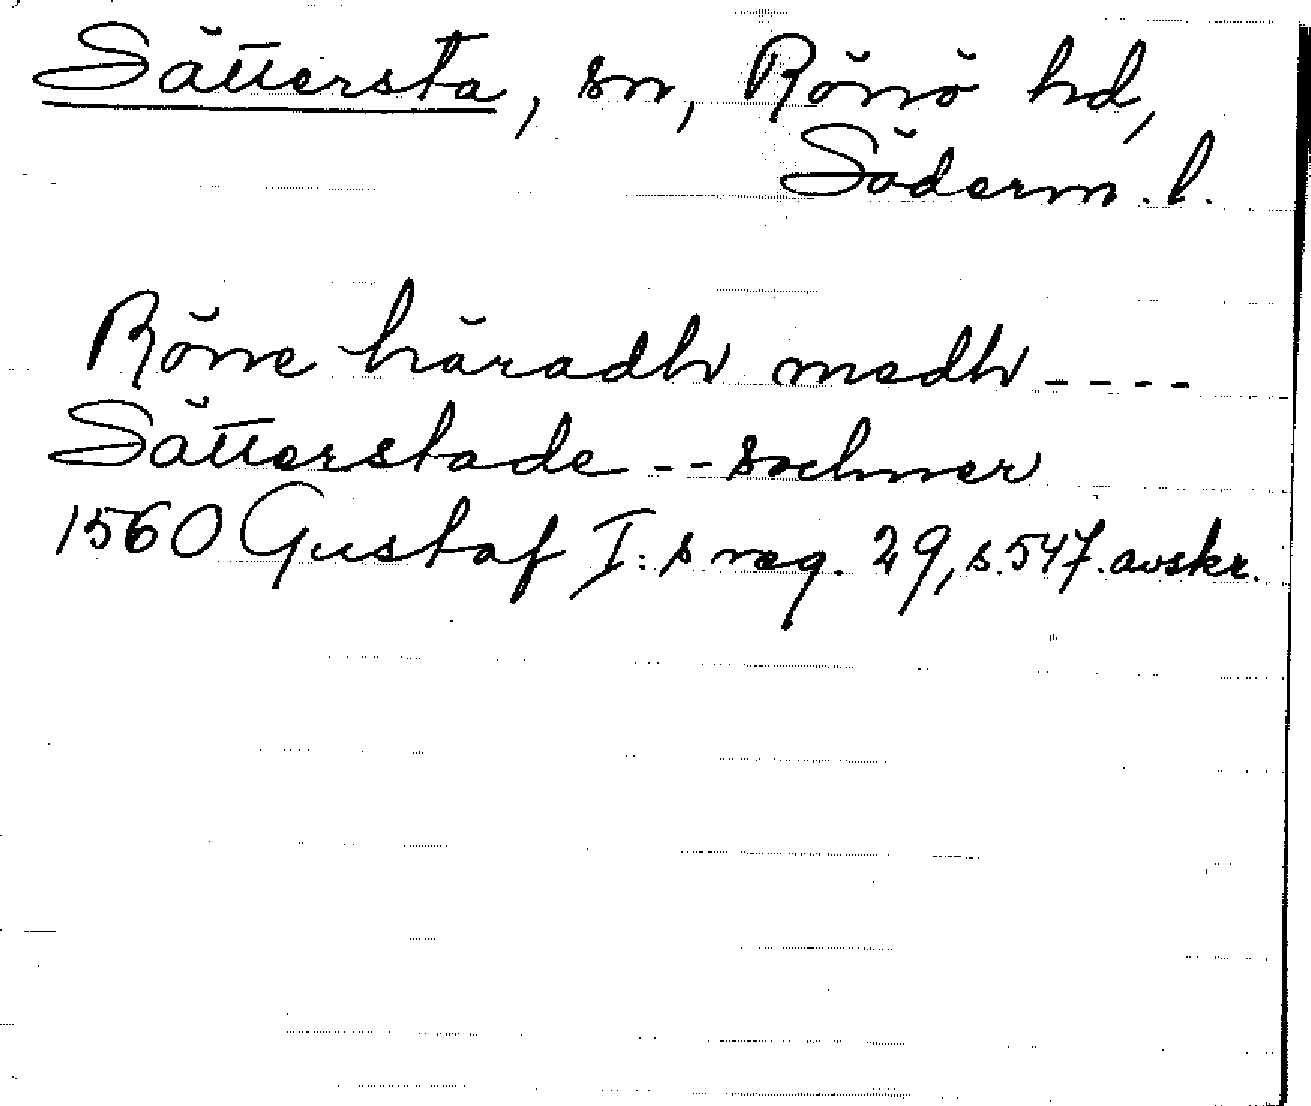 Sättersta, sn, Rönö hd,
Söderm. l.
Röne häradh medh ----
Sätterstade -- sochner
1560 Gustaf I:s reg. 29, s. 547. avskr.